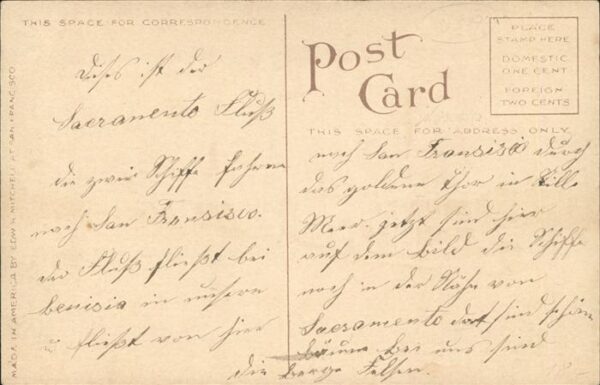 THIS SPACE FOR CORRESPONDENCE
Dises ist der
Sacramento Fluß
die zwei Schiffe fahren
nach San Fransisco.
der Fluß fließt bei
benisia in unsern
u fließt von hier
MADE IN AMERICA BY EDW. H. MITCHELL, AT SAN FRANCISCO
Post
Card
PLACE
STAMP HERE
DOMESTIC
ONE CENT
FOREIGN
TWO CENTS
THIS SPACE FOR ADDRESS ONLY
nach San Fransisco durch
das goldene Thor in Still
Meer. jetzt sind hier
auf dem bild die Schiffe
noch in der Nähe von
Sacramento dort sind schöne
bäume bei uns sind
die berge Felsen.